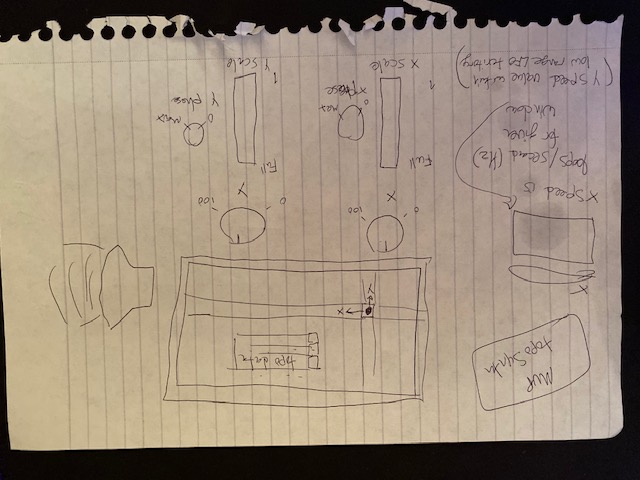 MVP
topo Synth
topo data
X
Y
X
X Speed is
loops/second (Hz)
for given
window
(Y speed value within
low range LFO territory)
0
100
X
0
100
Y
Full
1
X scale
0
max
X phase
Full
1
Y scale
0
max
Y phase